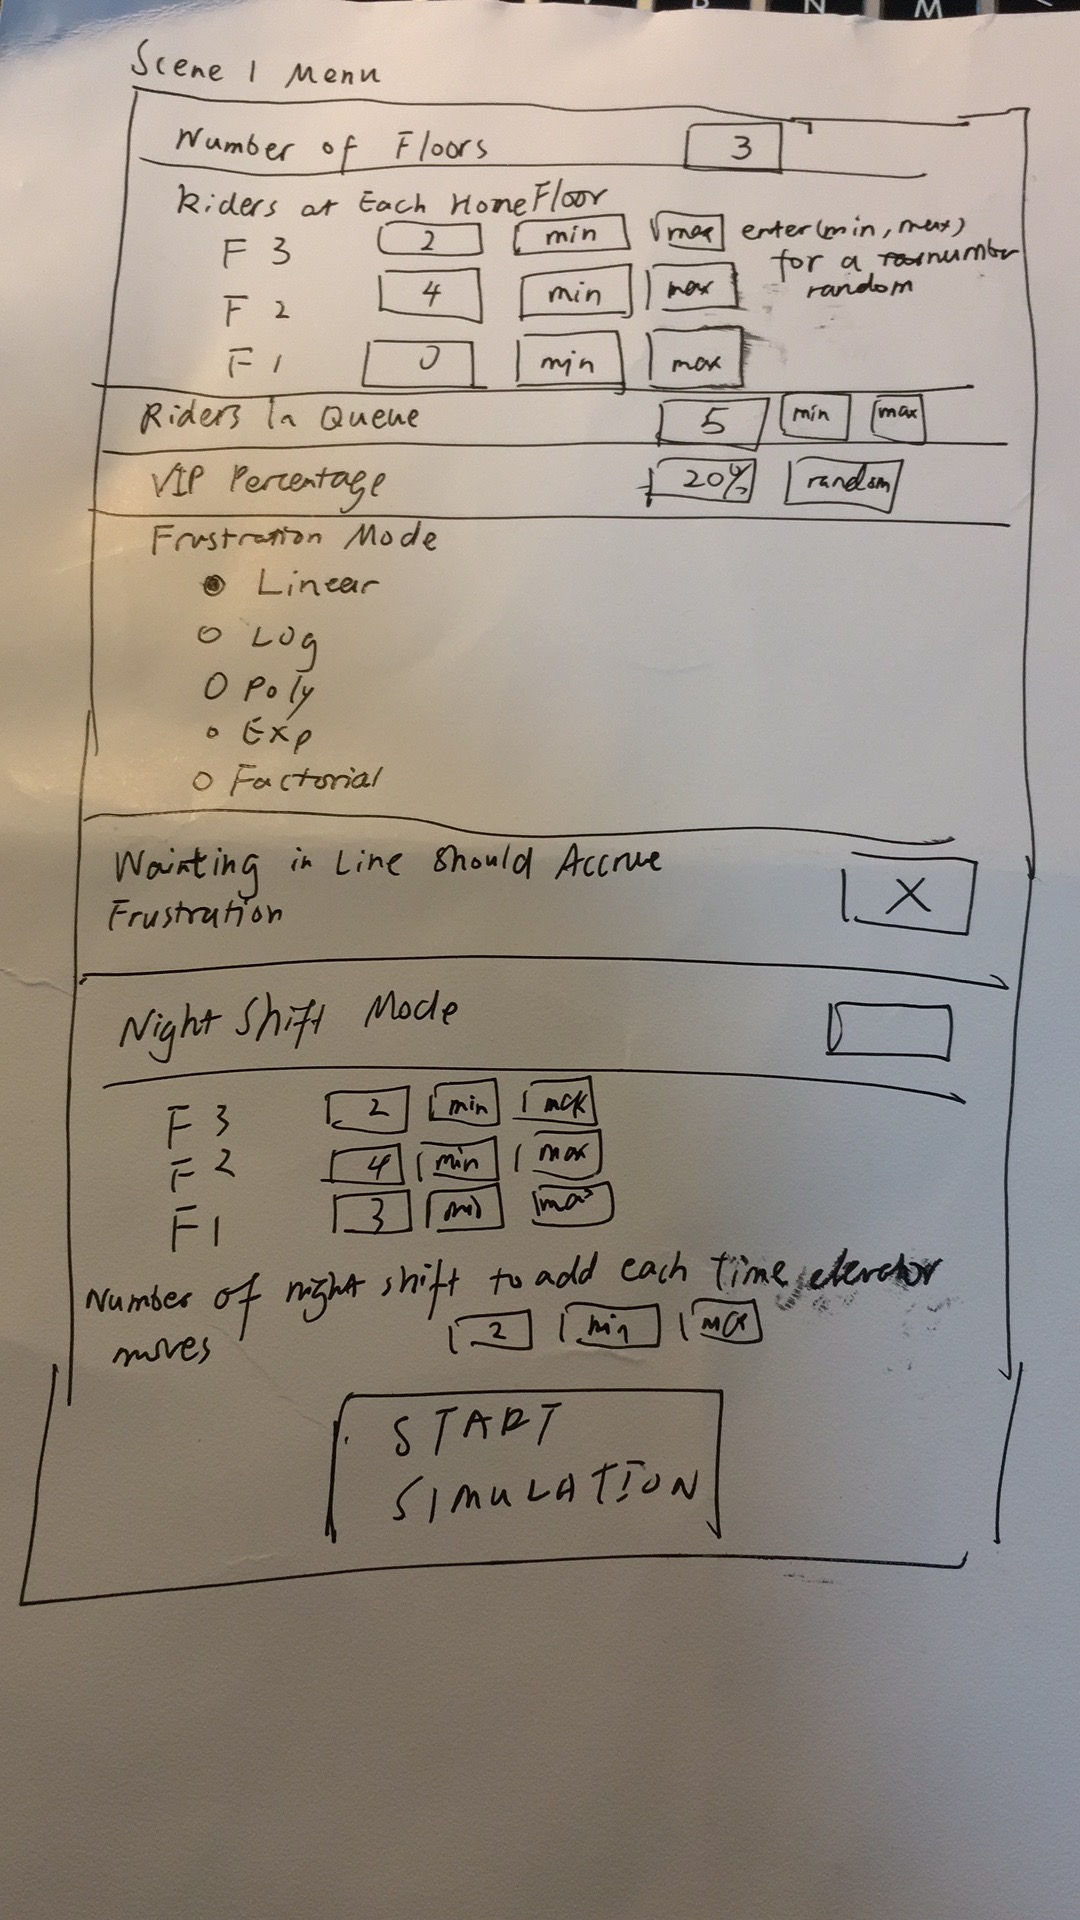 B N M
Scene 1 Menu
Number of Floors 3
Riders at Each Home Floor
F 3 2 min max enter (min, max)
for a number
random
F 2 4 min max
F 1 0 min max
Riders In Queue 5 min max
VIP Percentage 20% random
Frustration Mode
Linear
Log
Poly
Exp
Factorial
Wainting in Line Should Accrue
Frustration X
Night Shift Mode
F 3 2 min max
F 2 4 min max
F 1 3 min max
Number of night shift to add each time elevator
moves 2 min max
START
SIMULATION